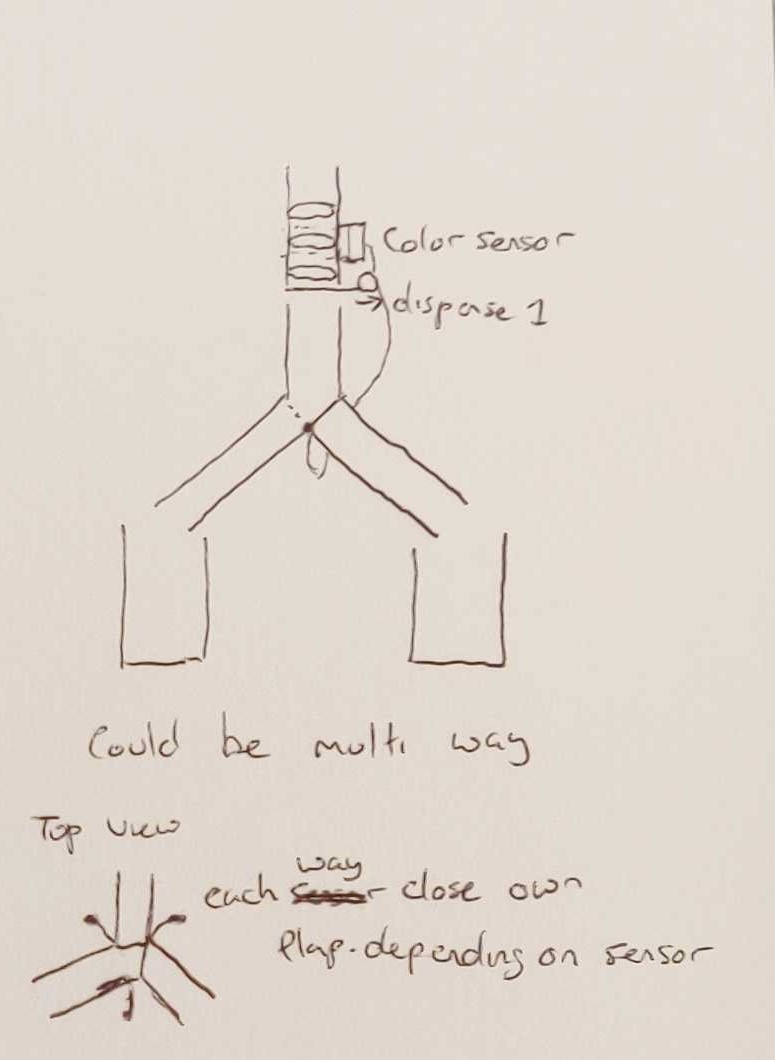 Color sensor
dispense 1
Could be multi way
Top view
way
each close own
flap. depending on sensor